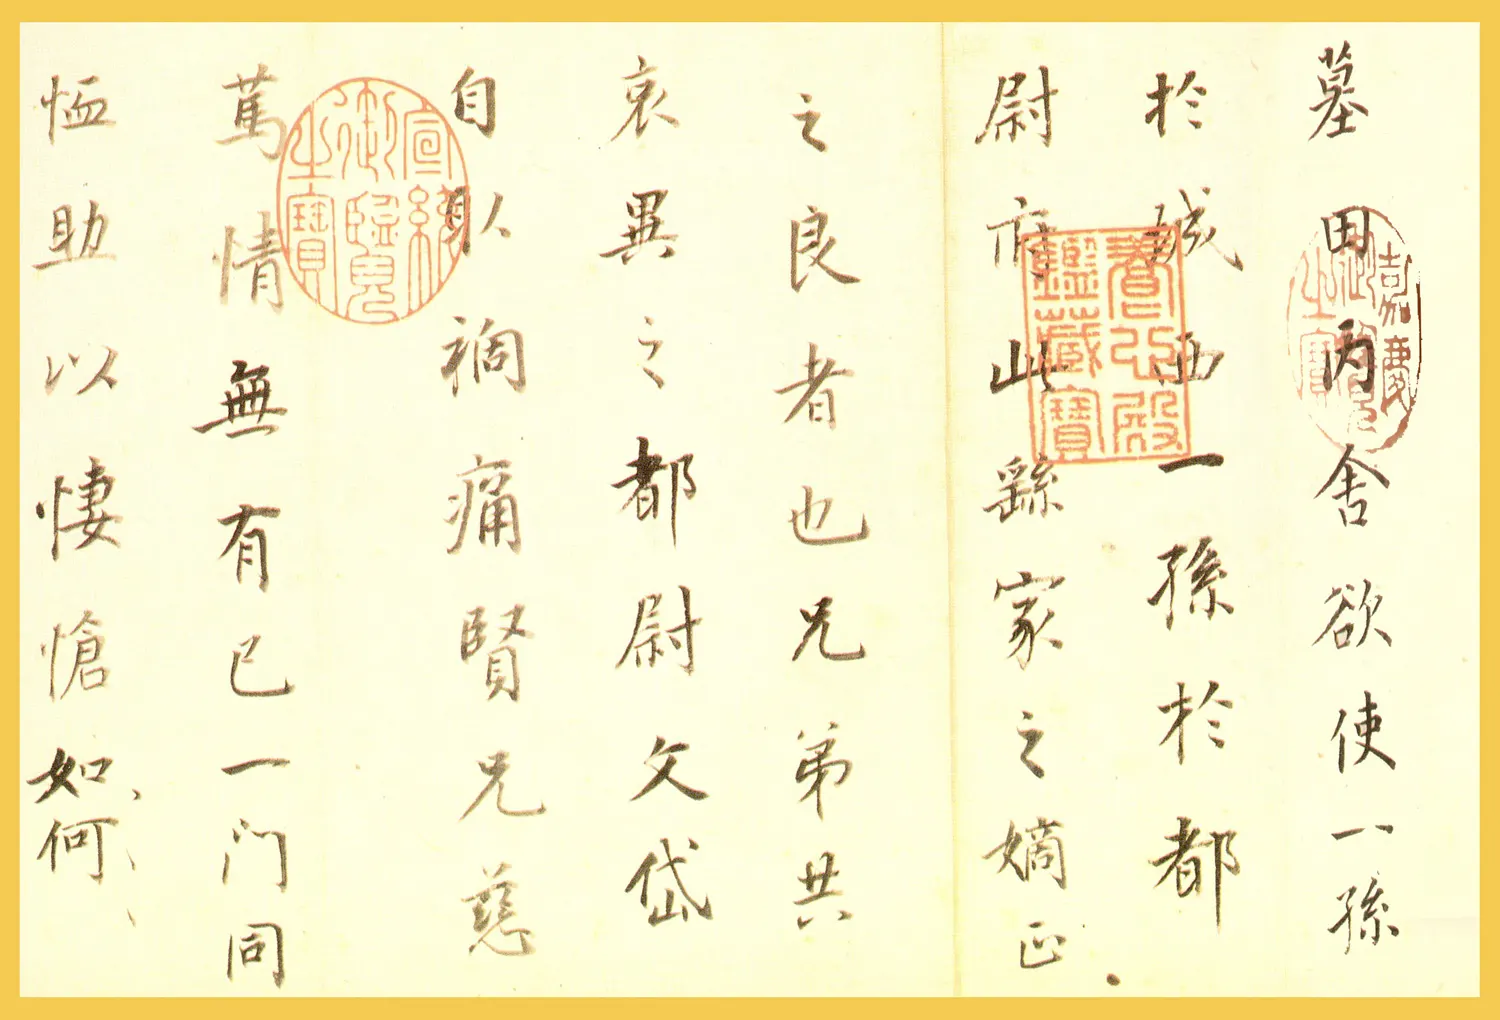 墓田丙舍欲使一孫
於城西一孫於都
尉府此繇家之嫡正
之良者也兄弟共
哀異之都尉文岱
自取禍痛賢兄慈
篤情無有已一門同
恤助以悽愴如、何、、
嘉慶御覽之寶
養心殿鑑藏寶
宣統御覽之寶